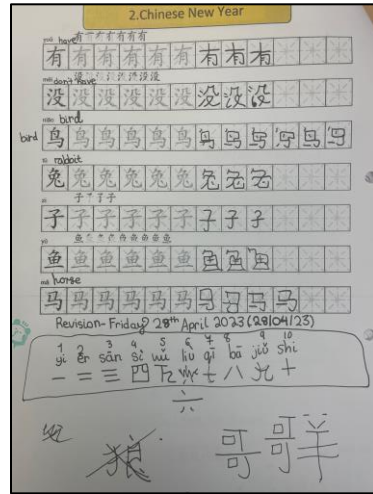 2.Chinese New Year
yǒu have
有有有有有有有有有
méi don't have
没没没没没没没没没
niǎo bird
bird 鸟鸟鸟鸟鸟鸟鸟鸟鸟鸟鸟鸟
tù rabbit
兔兔兔兔兔兔兔兔兔
子子子子
子子子子子子子子子
yú
鱼鱼鱼鱼鱼鱼鱼鱼鱼
mǎ horse
马马马马马马马马马马
Revision-Friday 28th April 2023 (28/04/23)
1 2 3 4 5 6 7 8 9 10
yi èr sān sì wǔ liù qī bā jiǔ shí
一 二 三 四 五 七 八 九 十
六
狼 哥 哥 羊